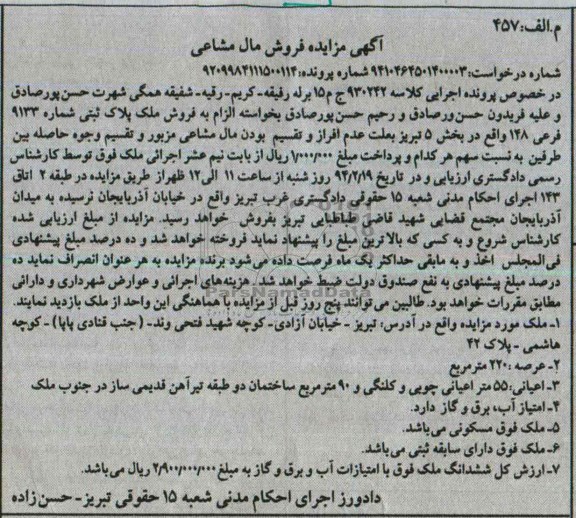 م.الف:۴۵۷
آگهی مزایده فروش مال مشاعی
شماره درخواست:۹۴۱۰۴۶۴۵۰۱۴۰۰۰۰۳ شماره پرونده:۹۲۰۹۹۸۴۱۱۱۵۰۰۱۱۴
در خصوص پرونده اجرایی کلاسه ۹۳۰۲۴۲ ج م۱۵ برله رفیقه-کریم-رقیه-شفیقه همگی شهرت حسن پورصادق
و علیه فریدون حسن ورصادق و رحیم حسن پورصادق بخواسته الزام به فروش ملک پلاک ثبتی شماره ۹۱۳۳
فرعی ۱۴۸ واقع در بخش ۵ تبریز بعلت عدم افراز و تقسیم بودن مال مشاعی مزبور و تقسیم وجوه حاصله بین
طرفین به نسبت سهم هر کدام و پرداخت مبلغ ۱/۰۰۰/۰۰۰ ریال از بابت نیم عشر اجرائی ملک فوق توسط کارشناس
رسمی دادگستری ارزیابی و در تاریخ ۹۴/۲/۱۹ روز شنبه از ساعت ۱۱ الی۱۲ ظهر از طریق مزایده در طبقه ۲ اتاق
۱۴۳ اجرای احکام مدنی شعبه ۱۵ حقوقی دادگستری غرب تبریز واقع در خیابان آذربایجان نرسیده به میدان
آذربایجان مجتمع قضایی شهید قاضی طباطبایی تبریز بفروش خواهد رسید. مزایده از مبلغ ارزیابی شده
کارشناس شروع و به کسی که بالاترین مبلغ را پیشنهاد نماید فروخته خواهد شد و ده درصد مبلغ پیشنهادی
فی‌المجلس اخذ و به مابقی حداکثر یک ماه فرصت داده می‌شود برنده مزایده به هر عنوان انصراف نماید ده
درصد مبلغ پیشنهادی به نفع صندوق دولت ضبط خواهد شد. هزینه‌های اجرائی و عوارض شهرداری و دارائی
مطابق مقررات خواهد بود. طالبین می‌توانند پنج روز قبل از مزایده با هماهنگی این واحد از ملک بازدید نمایند.
۱-ملک مورد مزایده واقع در آدرس: تبریز - خیابان آزادی- کوچه شهید فتحی وند- (جنب قنادی پاپا) - کوچه
هاشمی - پلاک ۴۲
۲-عرصه :۲۲۰ مترمربع
۳-اعیانی:۵۵ متر اعیانی چوبی و کلنگی و ۹۰ مترمربع ساختمان دو طبقه تیرآهن قدیمی ساز در جنوب ملک
۴-امتیاز آب، برق و گاز دارد.
۵- ملک فوق مسکونی می‌باشد.
۶-ملک فوق دارای سابقه ثبتی می‌باشد.
۷-ارزش کل ششدانگ ملک فوق با امتیازات آب و برق و گاز به مبلغ ۲/۹۰۰/۰۰۰/۰۰۰ ریال می‌باشد.
دادورز اجرای احکام مدنی شعبه ۱۵ حقوقی تبریز-حسن زاده
ParsNamadData